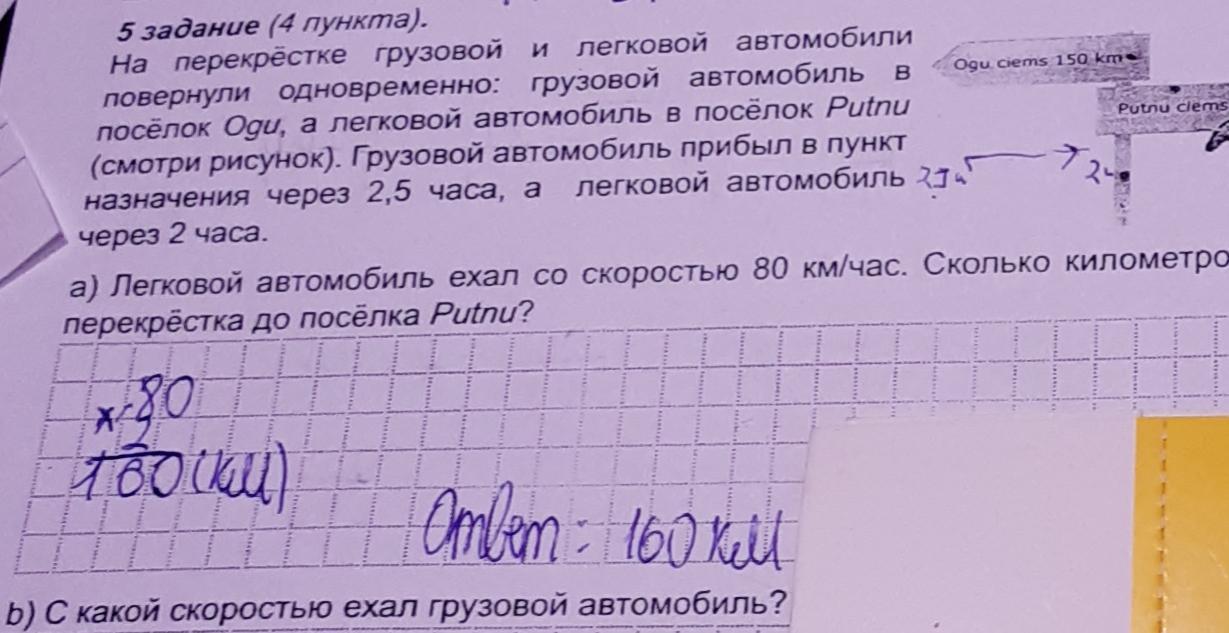 5 задание (4 пункта).
На перекрёстке грузовой и легковой автомобили
повернули одновременно: грузовой автомобиль в
посёлок Ogu, а легковой автомобиль в посёлок Putnu
(смотри рисунок). Грузовой автомобиль прибыл в пункт
назначения через 2,5 часа, а легковой автомобиль
через 2 часа.
Ogu ciems 150 km
Putnu ciems
2ч
а) Легковой автомобиль ехал со скоростью 80 км/час. Сколько километро
перекрёстка до посёлка Putnu?
80
x 2
160 (км)
Ответ: 160 км
b) С какой скоростью ехал грузовой автомобиль?